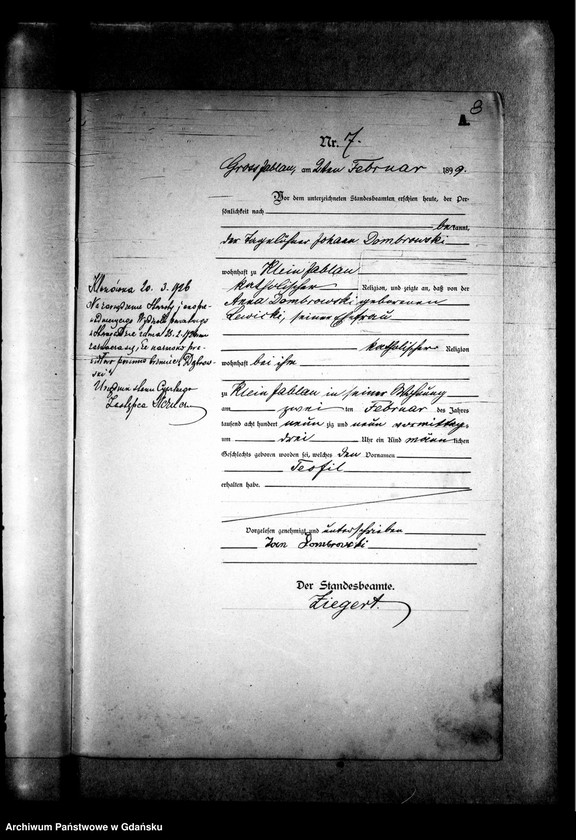 8
A.
Nr. 7.
Gross Jablau, am 2ten Februar 1899.
Vor dem unterzeichneten Standesbeamten erschien heute, der Per-
sönlichkeit nach
bekannt,
der Tagelöhner Johann Dombrowski
wohnhaft zu Klein Jablau
katholischer Religion, und zeigte an, daß von der
Anna Dombrowski geborenen
Lewicki, seiner Ehefrau
katholischer Religion
wohnhaft bei ihm
zu Klein Jablau in seiner Wohnung
am zwei ten Februar des Jahres
tausend acht hundert neun zig und neun vormittags
um drei Uhr ein Kind männlichen
Geschlechts geboren worden sei, welches den Vornamen
Teofil
erhalten habe.
Vorgelesen, genehmigt und unterschrieben
Jan Dombrowski
Der Standesbeamte.
Ziegert.
20. 3. 926
Na zarządzenie Starosty
Wydziału
z dnia
że nazwisko
brzmieć "Dąbrow-
ski"
Urzędnik stanu Cywilnego
Zastępca
Archiwum Państwowe w Gdańsku